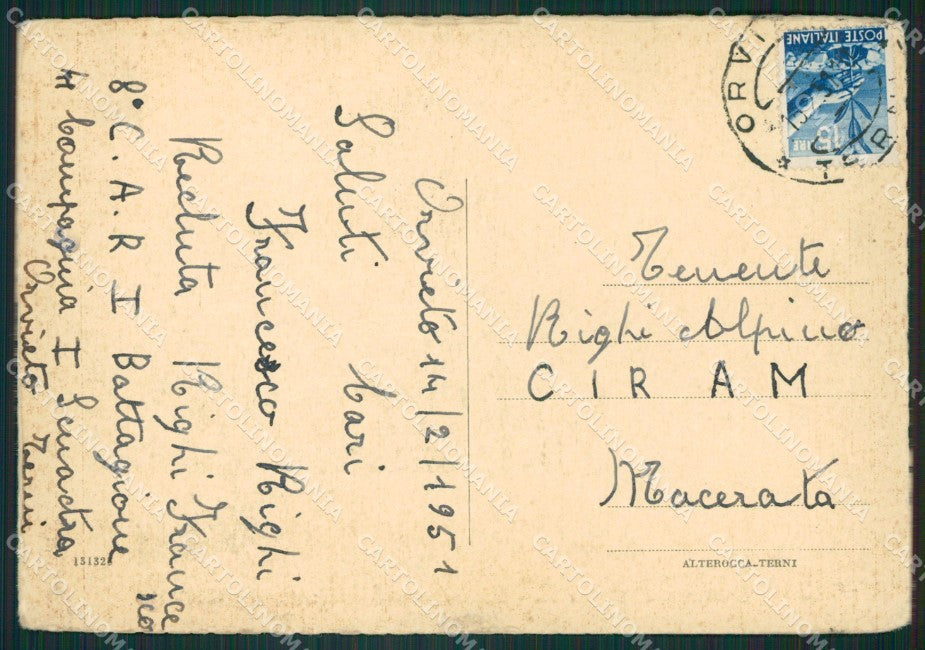 Orvieto 14/2/1951
Saluti Cari
Francesco Righi
Recluta Righi France
sco
8° C. A. R I Battaglione
4 Compagnia I Squadra
Orvieto Terni
Tenente
Righi Alpino
C I R A M
Macerata
151328
ALTEROCCA-TERNI
POSTE ITALIANE
15 LIRE
ORVI
CARTOLINOMANIA